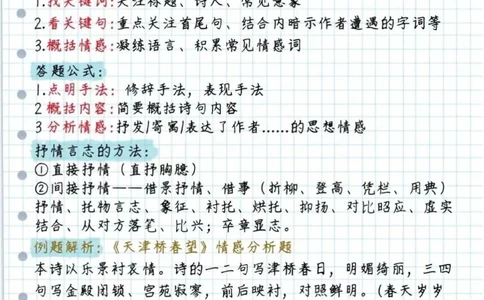 1.找关键词:关注标题、诗人、常见意象
2.看关键句:重点关注首尾句、结合内暗示作者遭遇的字词等
3.概括情感:凝练语言、积累常见情感词
答题公式:
1.点明手法: 修辞手法,表现手法
2概括内容:简要概括诗句内容
3分析情感:抒发/寄寓/表达了作者……的思想情感
抒情言志的方法:
①直接抒情(直抒胸臆)
②间接抒情——借景抒情、借事(折柳、登高、凭栏、用典)
抒情、托物言志、象征、衬托、烘托、抑扬、对比昭应、虚实
结合、从对方落笔、比兴;卒章显志。
例题解析:《天津桥春望》情感分析题
本诗以乐景衬哀情。诗的一二句写津桥春日,明媚绮丽,三四
句写金殿闭锁、宫苑寂寥,前后映衬,对照鲜明。(春天岁岁